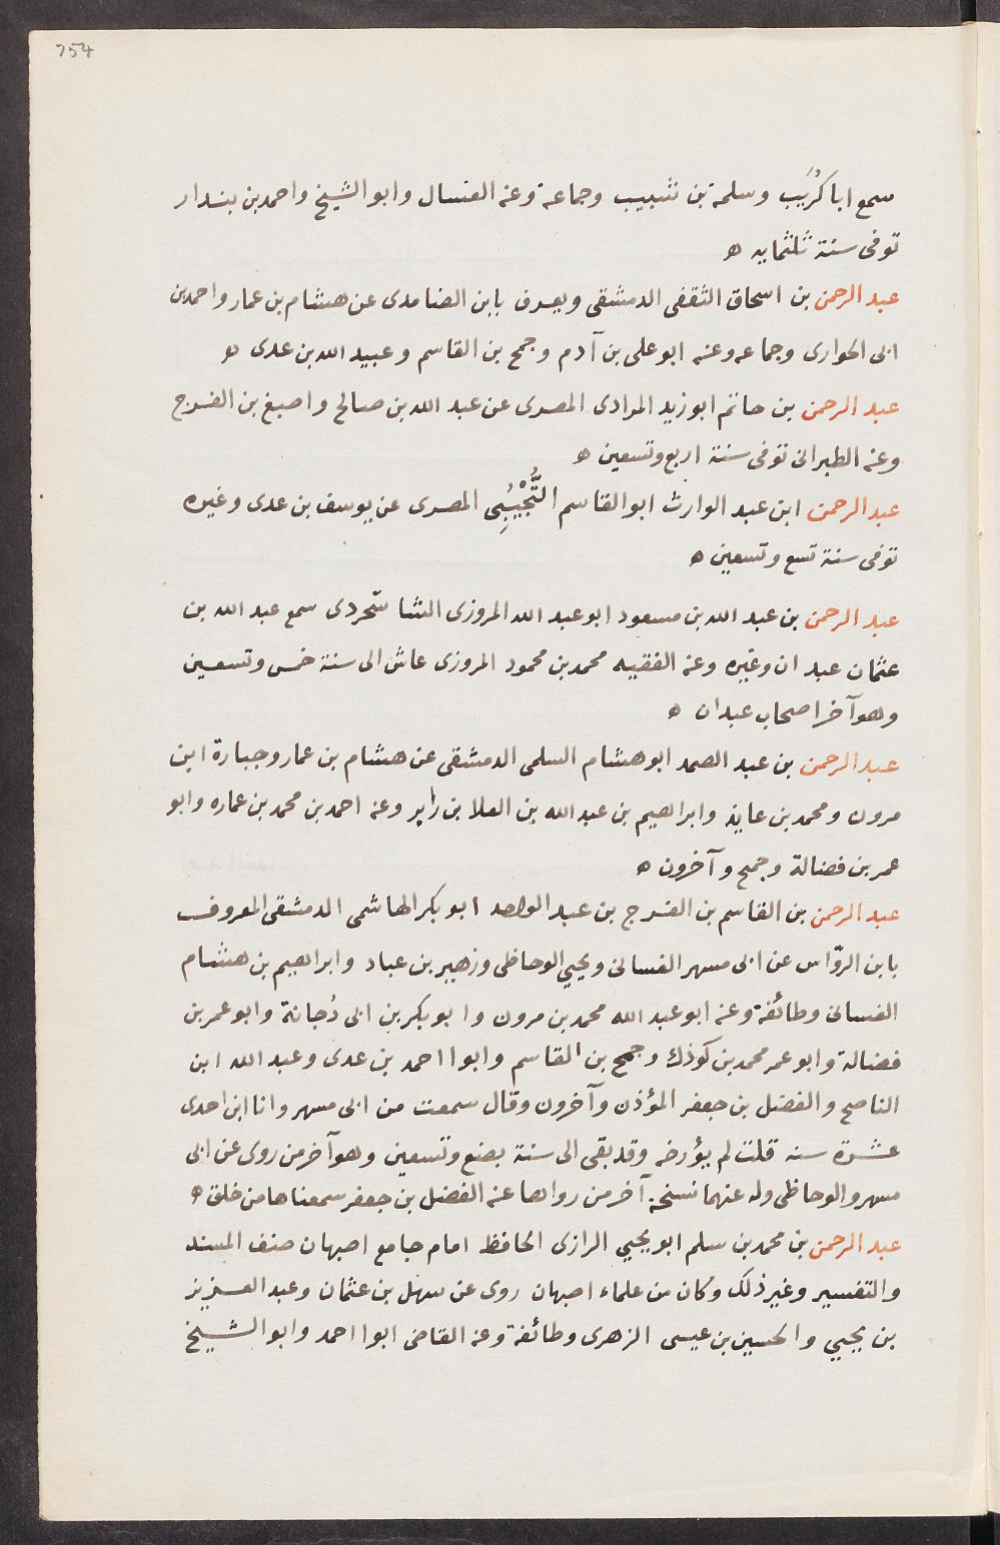 754
سمع ابا كُرَيب وسلمة بن شبيب وجماعة وعنه العسال وابو الشيخ واحمد بن بندار
توفى سنة ثلثمايه ه
عبد الرحمن بن اسحاق الثقفى الدمشقى ويعرف بابن الضامدى عن هشام بن عمار واحمد بن
ابى الحوارى وجماعه وعنه ابو على بن آدم وجمح بن القاسم وعبيد الله بن عدى ه
عبد الرحمن بن حاتم ابو زيد المرادى المصرى عن عبد الله بن صالح واصبغ بن الفرج
وعنه الطبرانى توفى سنة اربع وتسعين ه
عبد الرحمن ابن عبد الوارث ابو القاسم التُّجْيْبُِى المصرى عن يوسف بن عدى وغيره
توفى سنة تسع وتسعين ه
عبد الرحمن بن عبد الله بن مسعود ابو عبد الله المروزى الشا سحردى سمع عبد الله بن
عثمان عبد ان وغيره وعنه الفقيه محمد بن محمود المروزى عاش الى سنة خمس وتسعين
وهو آخر اصحاب عبدان ه
عبد الرحمن بن عبد الصمد ابو هشام السلمى الدمشقى عن هشام بن عمار وجبارة ابن
مرون ومحمد بن عايذ وابراهيم بن عبد الله بن العلا بن زابر وعنه احمد بن محمد بن عماره وابو
عمر بن فضالة وجمح وآخرون ه
عبد الرحمن بن القاسم بن الفرج بن عبد الواحد ابو بكر الهاشمى الدمشقى المعروف
بابن الروّاس عن ابى مسهر الغسانى ويحيي الوحاظى وزهير بن عباد وابراهيم بن هشام
الغسانى وطائفة وعنه ابو عبد الله محمد بن مرون وابو بكر بن ابى دُجانة وابو عمر بن
فضالة وابو عمر محمد بن كوذك وجمح بن القاسم وابوا احمد بن عدى وعبد الله ابن
الناصح والفضل بن جعفر المؤذن وآخرون وقال سمعت من ابى مسهر وانا ابن احدى
عشرة سنه قلت لم يؤرخه وقد بقى الى سنة بضع وتسعين وهو آخر من روى عن ابى
مسهر والوحاظى وله عنهما نسخة آخر من رواها عنه الفضل بن جعفر سمعناها من خلق ه
عبد الرحمن بن محمد بن سلم ابو يحيي الرازى الحافظ امام جامع اصبهان صنف المسند
والتفسير وغير ذلك وكان من علماء اصبهان روى عن سهل بن عثمان وعبد العزيز
بن يحيي والحسين بن عيسى الزهرى وطائفة وعنه القاضى ابوا احمد وابو الشيخ